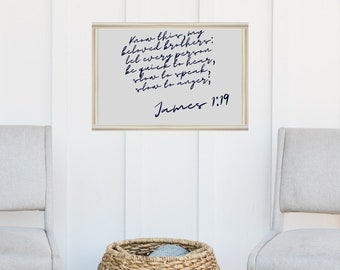 Know this, my
beloved brothers:
let every person
be quick to hear,
slow to speak,
slow to anger;
James 1:19